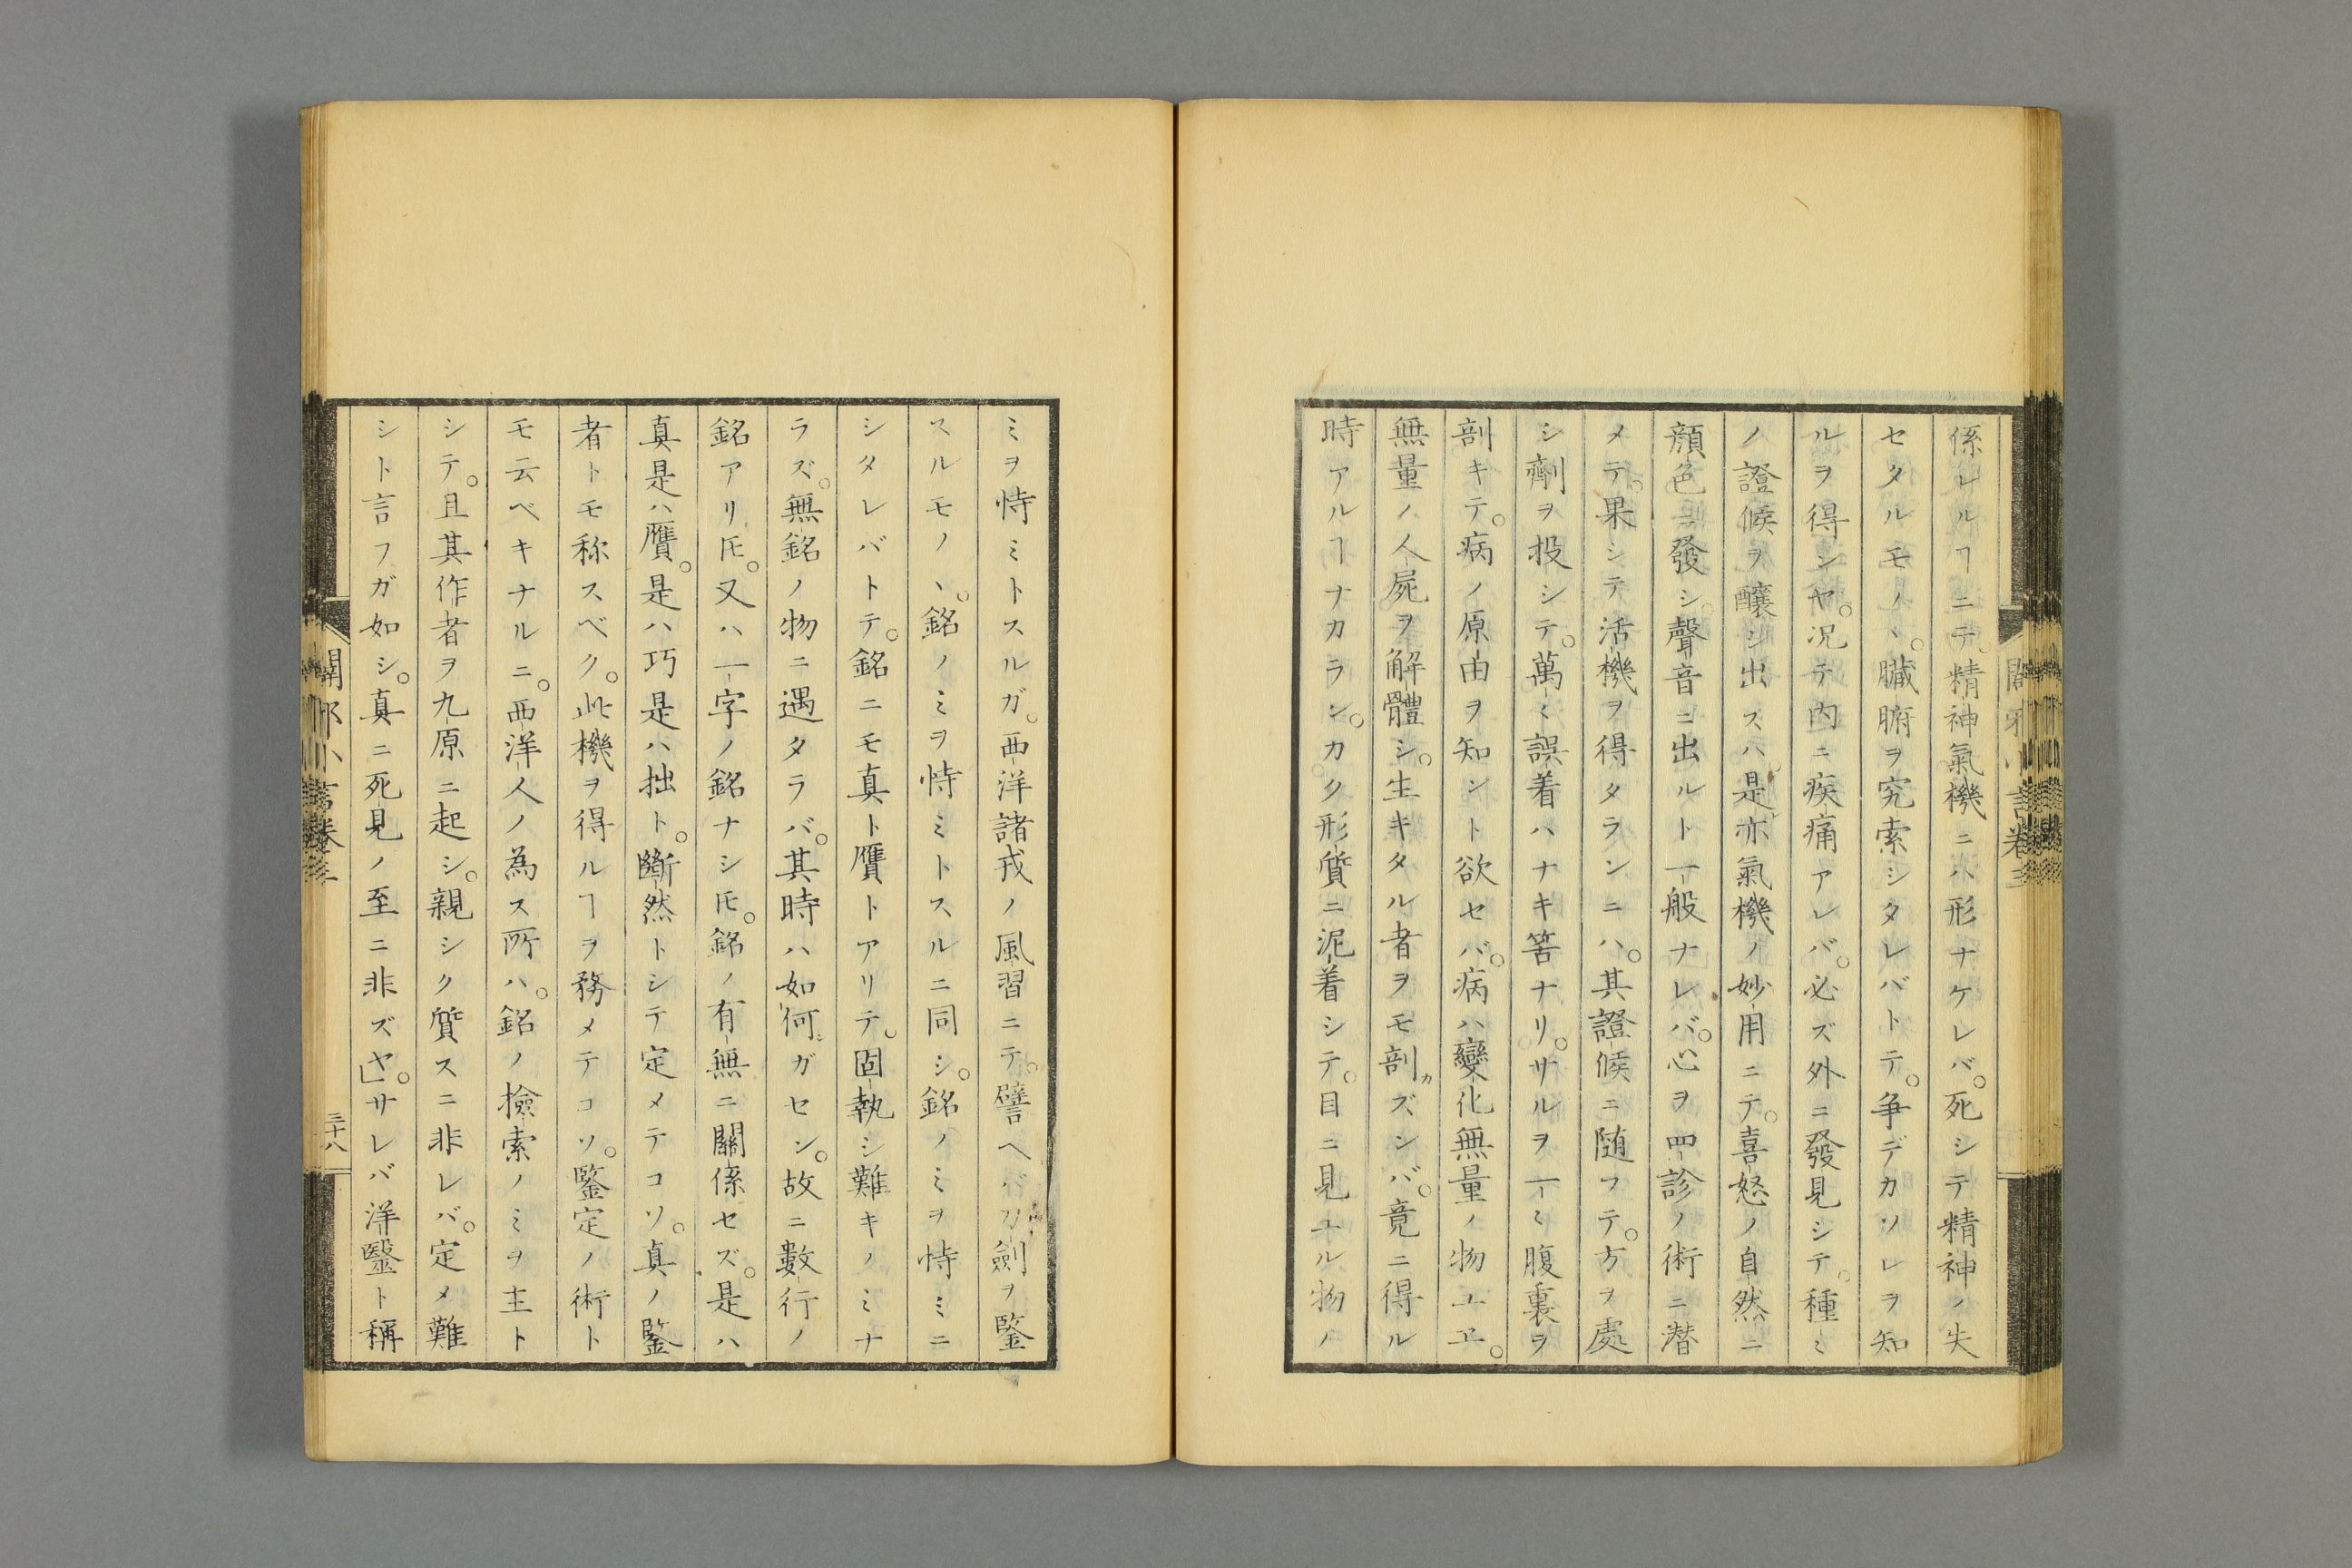 係レルヿニテ。精神氣機ニハ形ナケレバ。死シテ精神ノ失
セタルモノヽ。臓腑ヲ究索シタレバトテ。争デカソレヲ知
ルヲ得シヤ。况テ内ニ疾痛アレバ。必ズ外ニ發見シテ。種ミ
ノ證候ヲ釀シ出スハ。是亦氣機ノ妙用ニテ。喜怒ノ自然ニ
顔色ニ發シ。聲音ニ出ルト一般ナレバ。心ヲ四診ノ術ニ潜
メテ。果シテ活機ヲ得タランニハ。其證候ニ随フテ。方ヲ處
シ劑ヲ投シテ。萬ミ誤着ハナキ筈ナリ。サルヲ一ミ腹裏ヲ
剖キテ。病ノ原由ヲ知ント欲セバ。病ハ變化無量ノ物ユヱ。
無量ノ人屍ヲ解體シ。生キタル者ヲモ剖カズンバ。竟ニ得ル
時アルヿナカラン。カク形質ニ泥着シテ。目ニ見ユル物ノ
ミヲ恃ミトスルガ。西洋諸戎ノ風習ニテ。譬ヘバ刀劍ヲ鑒
スルモノヽ。銘ノミヲ恃ミトスルニ同シ。銘ノミヲ恃ミニ
シタレバトテ。銘ニモ真ト贋トアリテ。固執シ難キノミナ
ラズ。無銘ノ物ニ遇タラバ。其時ハ如何ガセン。故ニ數行ノ
銘アリ𪜈。又ハ一字ノ銘ナシ𪜈。銘ノ有無ニ關係セズ。是ハ
真是ハ贋。是ハ巧是ハ拙ト。斷然トシテ定メテコソ。真ノ鑒
者トモ称スベク。此機ヲ得ルヿヲ務メテコソ。鑒定ノ術ト
モ云ベキナルニ。西洋人ノ為ス所ハ。銘ノ檢索ノミヲ主ト
シテ。且其作者ヲ九原ニ起シ。親シク質スニ非レバ。定メ難
シト言フガ如シ。真ニ死見ノ至ニ非ズヤ。」サレバ洋毉ト稱
闢邪小言卷三
三十八